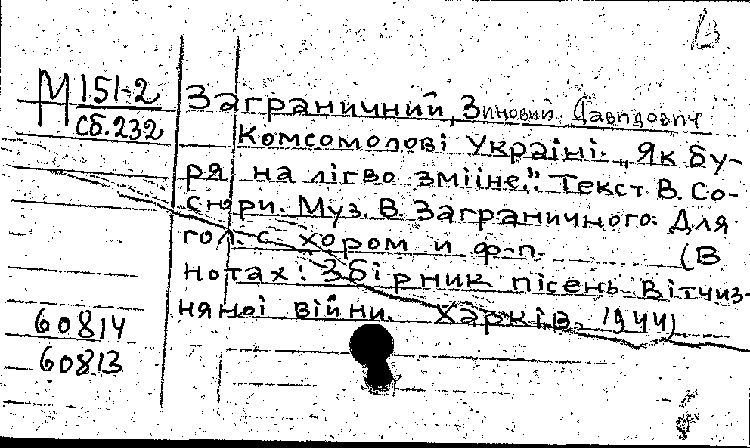 М 151-2
Сб.232
Заграничний, Зиновий Давидович
Комсомолові Україні. „Як бу-
ря на лігво зміїне". Текст В. Со-
сюри. Муз. В. Заграничного. Для
гол. с хором и ф-п. (В
нотах: Збірник пісень Вітчиз-
няної війни. Харків, 1944)
60814
60813